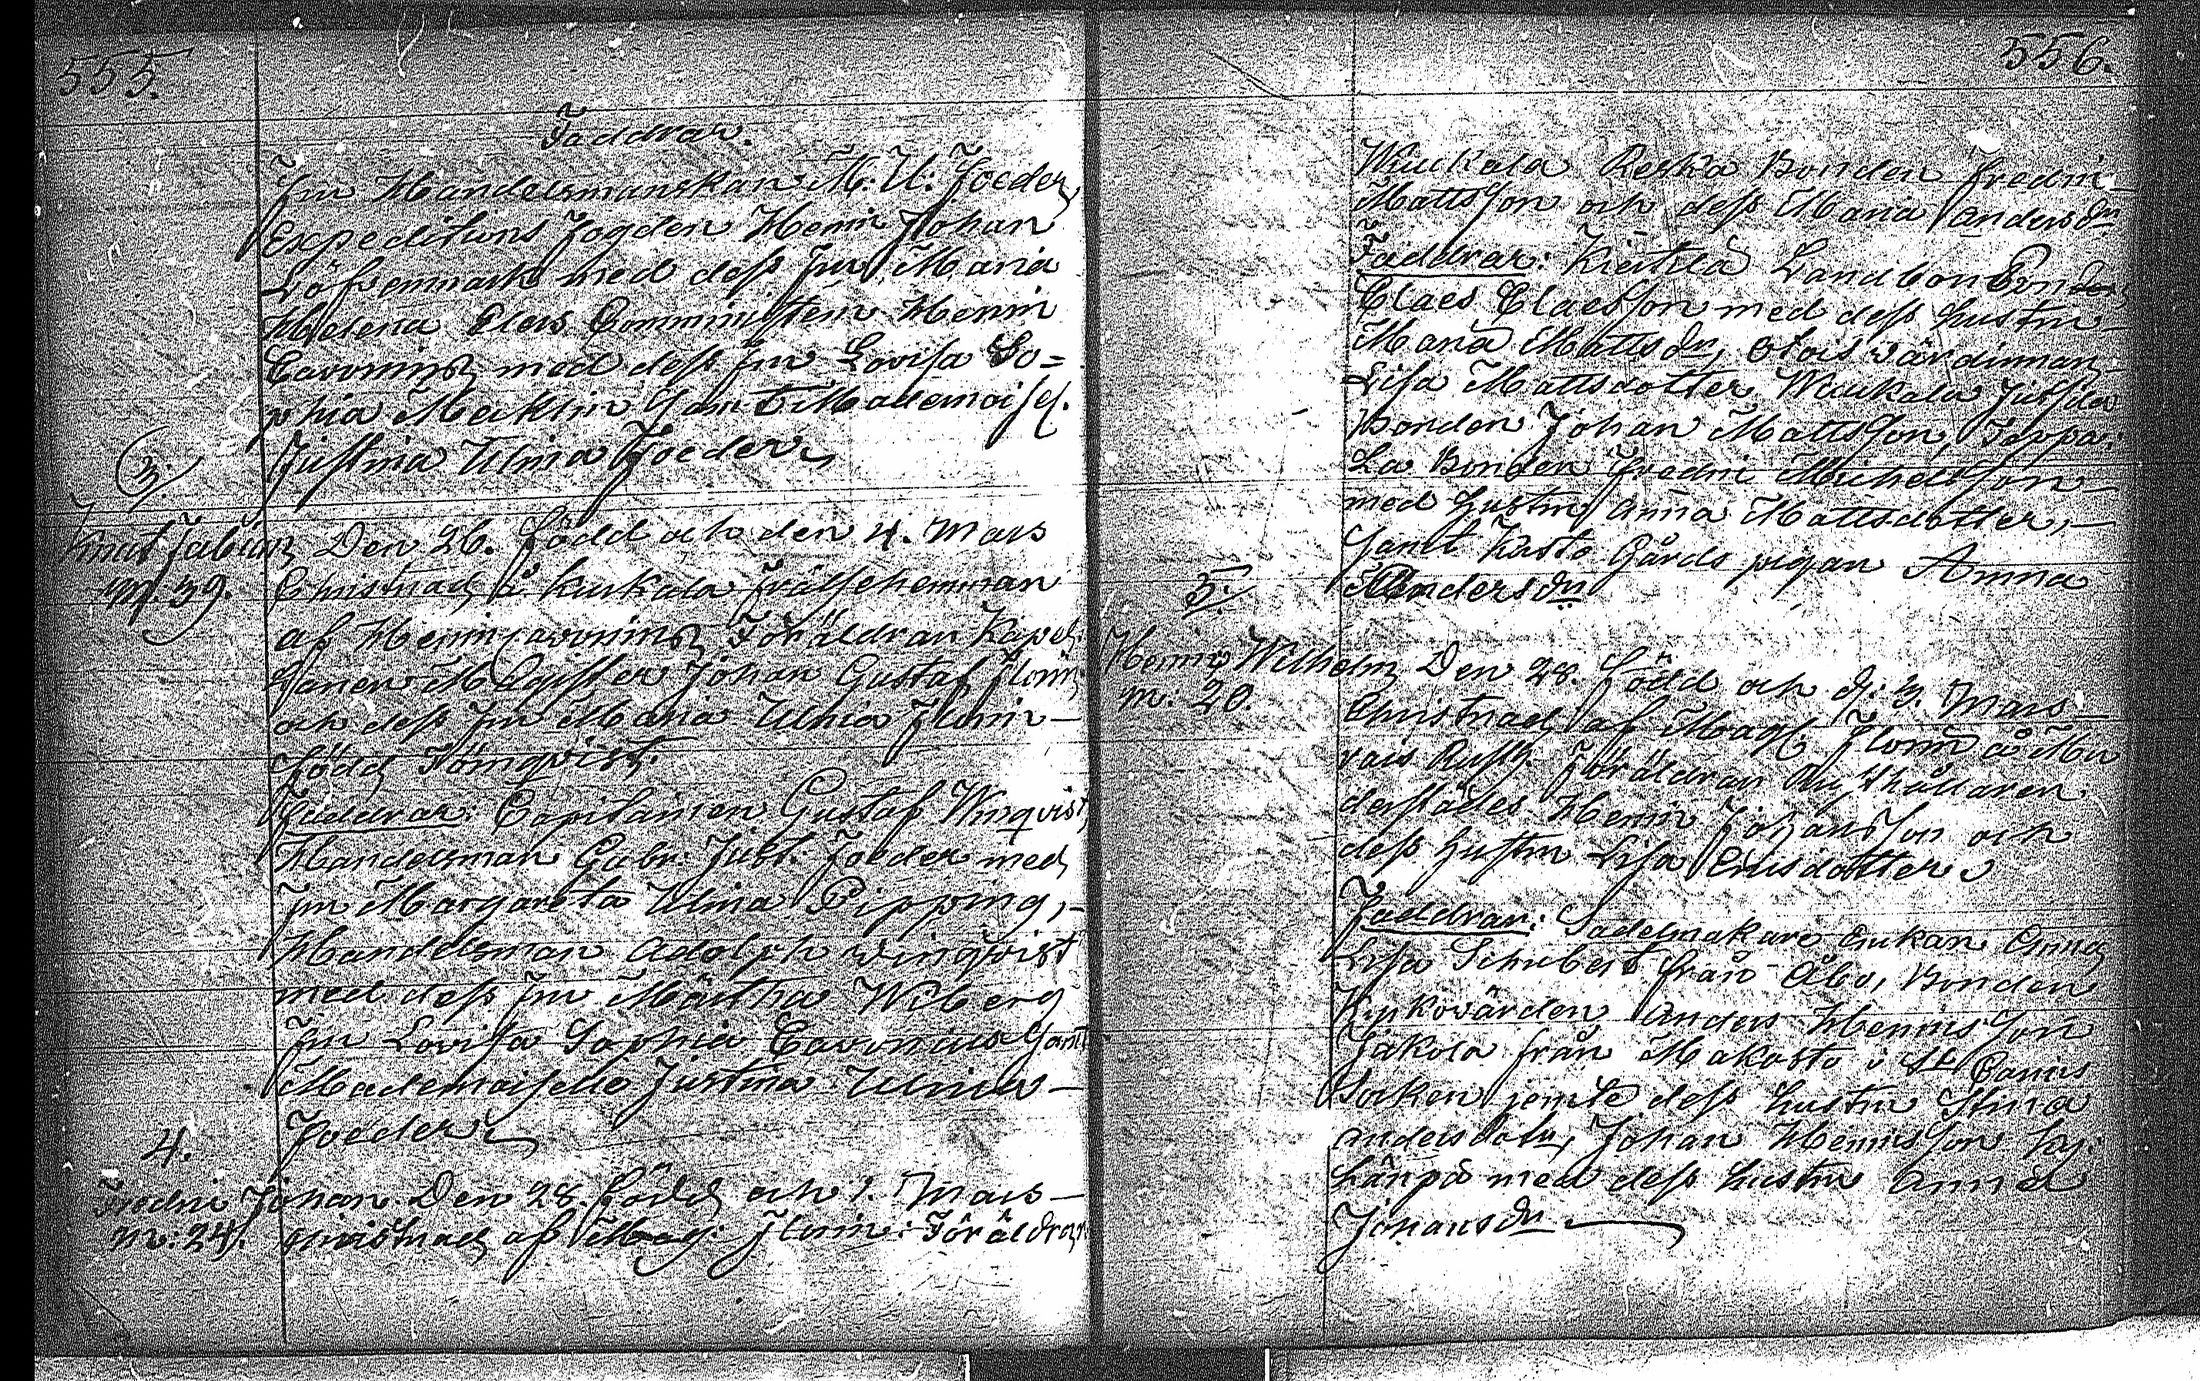 555.
Faddrar.
Fru Handelsmanskan M. U. Foeder,
Expeditions Fogden Henric Johan
Löfvenmark med dess Fru Maria
Helena Elers Comministern Henric
Cavonius med dess Fru Lovisa So=
phia Mecklin samt Mademoisel.
Justina Ulrica Foeder
3.
Knut Fabian Den 26. född och den 4. Mars
m. 39. Christnad å Kukala Frälsehemman
af Henric Cavonius, Föräldrar Kapel
lanen Magister Johan Gustaf Florin
och dess Fru Maria Ulrica Florin
född Törnqvist.
Faddrar: Capitainen Gustaf Winqvist,
Handelsman Gabr: Just: Foeder med
Fru Margareta Ulrica Pipping,
Handelsman Adolph Winqvist
med dess Fru Märtha Wiberg
Fru Lovisa Sophia Cavonius samt
Mademoiselle Justina Ulrica
Foeder
4.
Fredric Johan Den 28. född och 1. Mars
m: 24. christnad af Mag: Florin: Föräldrar
556.
Wuukala Reska Bonden Fredric
Mattsson och dess Maria Andersdr
Faddrar: Landbonden
Claes Claesson med dess hustru
Maria Mattsdr, Värdinnan
Lisa Mattsdotter Wuukala
Bonden Johan Mattsson,
La Bonden Fredric Michelsson
med hustru Anna Mattsdotter,
samt Kusto Gårds pigan Anna
Andersdr
5.
Henric Wilhelm Den 28. född och d. 3. Mars
m: 20. Christnad af Mag Florin å
Rusth. Föräldrar Rusthållaren
derstädes Henric Johansson och
dess hustru Lisa Ericsdotter.
Faddrar: Sadelmakare Enkan Anna
Lisa Schubert från Åbo, Bonden
Kyrkovärden Anders Henricsson
Jakola från Makosto i St Carins
Socken jemte dess hustru Stina
Andersdotr, Johan Henricsson
med dess hustru Anna
Johansdr